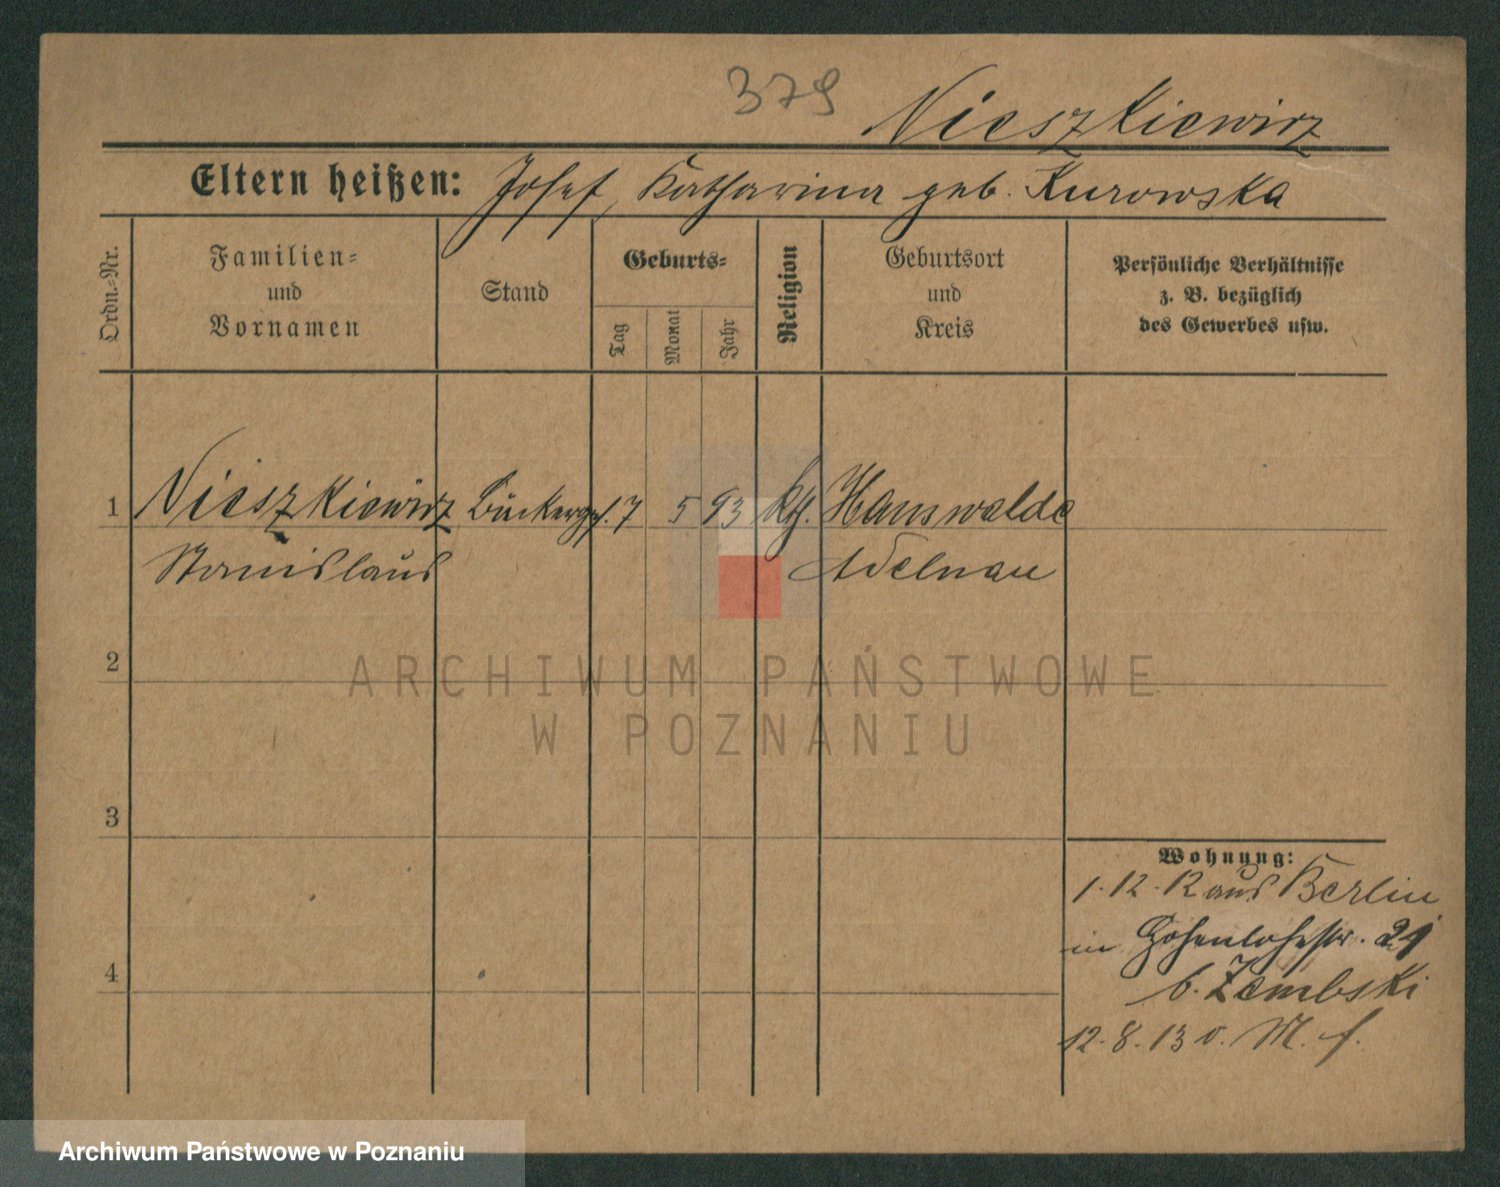 379 Nieszkiewicz
Eltern heißen: Josef, Katharina geb. Kurowska
Ordn.-Nr.
Familien-
und
Vornamen
Stand
Geburts-
Tag
Monat
Jahr
Religion
Geburtsort
und
Kreis
Persönliche Verhältnisse
z. B. bezüglich
des Gewerbes usw.
1 Nieszkiewicz Bäckerges. 7 5 93 kth. Hanswalde
Stanislaus Adelnau
2
ARCHIWUM PAŃSTWOWE
W POZNANIU
3
Wohnung:
1.12.12 aus Berlin
in Hohenlohestr. 21
b. Zembski
4
12.8.13 v. M. f.
Archiwum Państwowe w Poznaniu